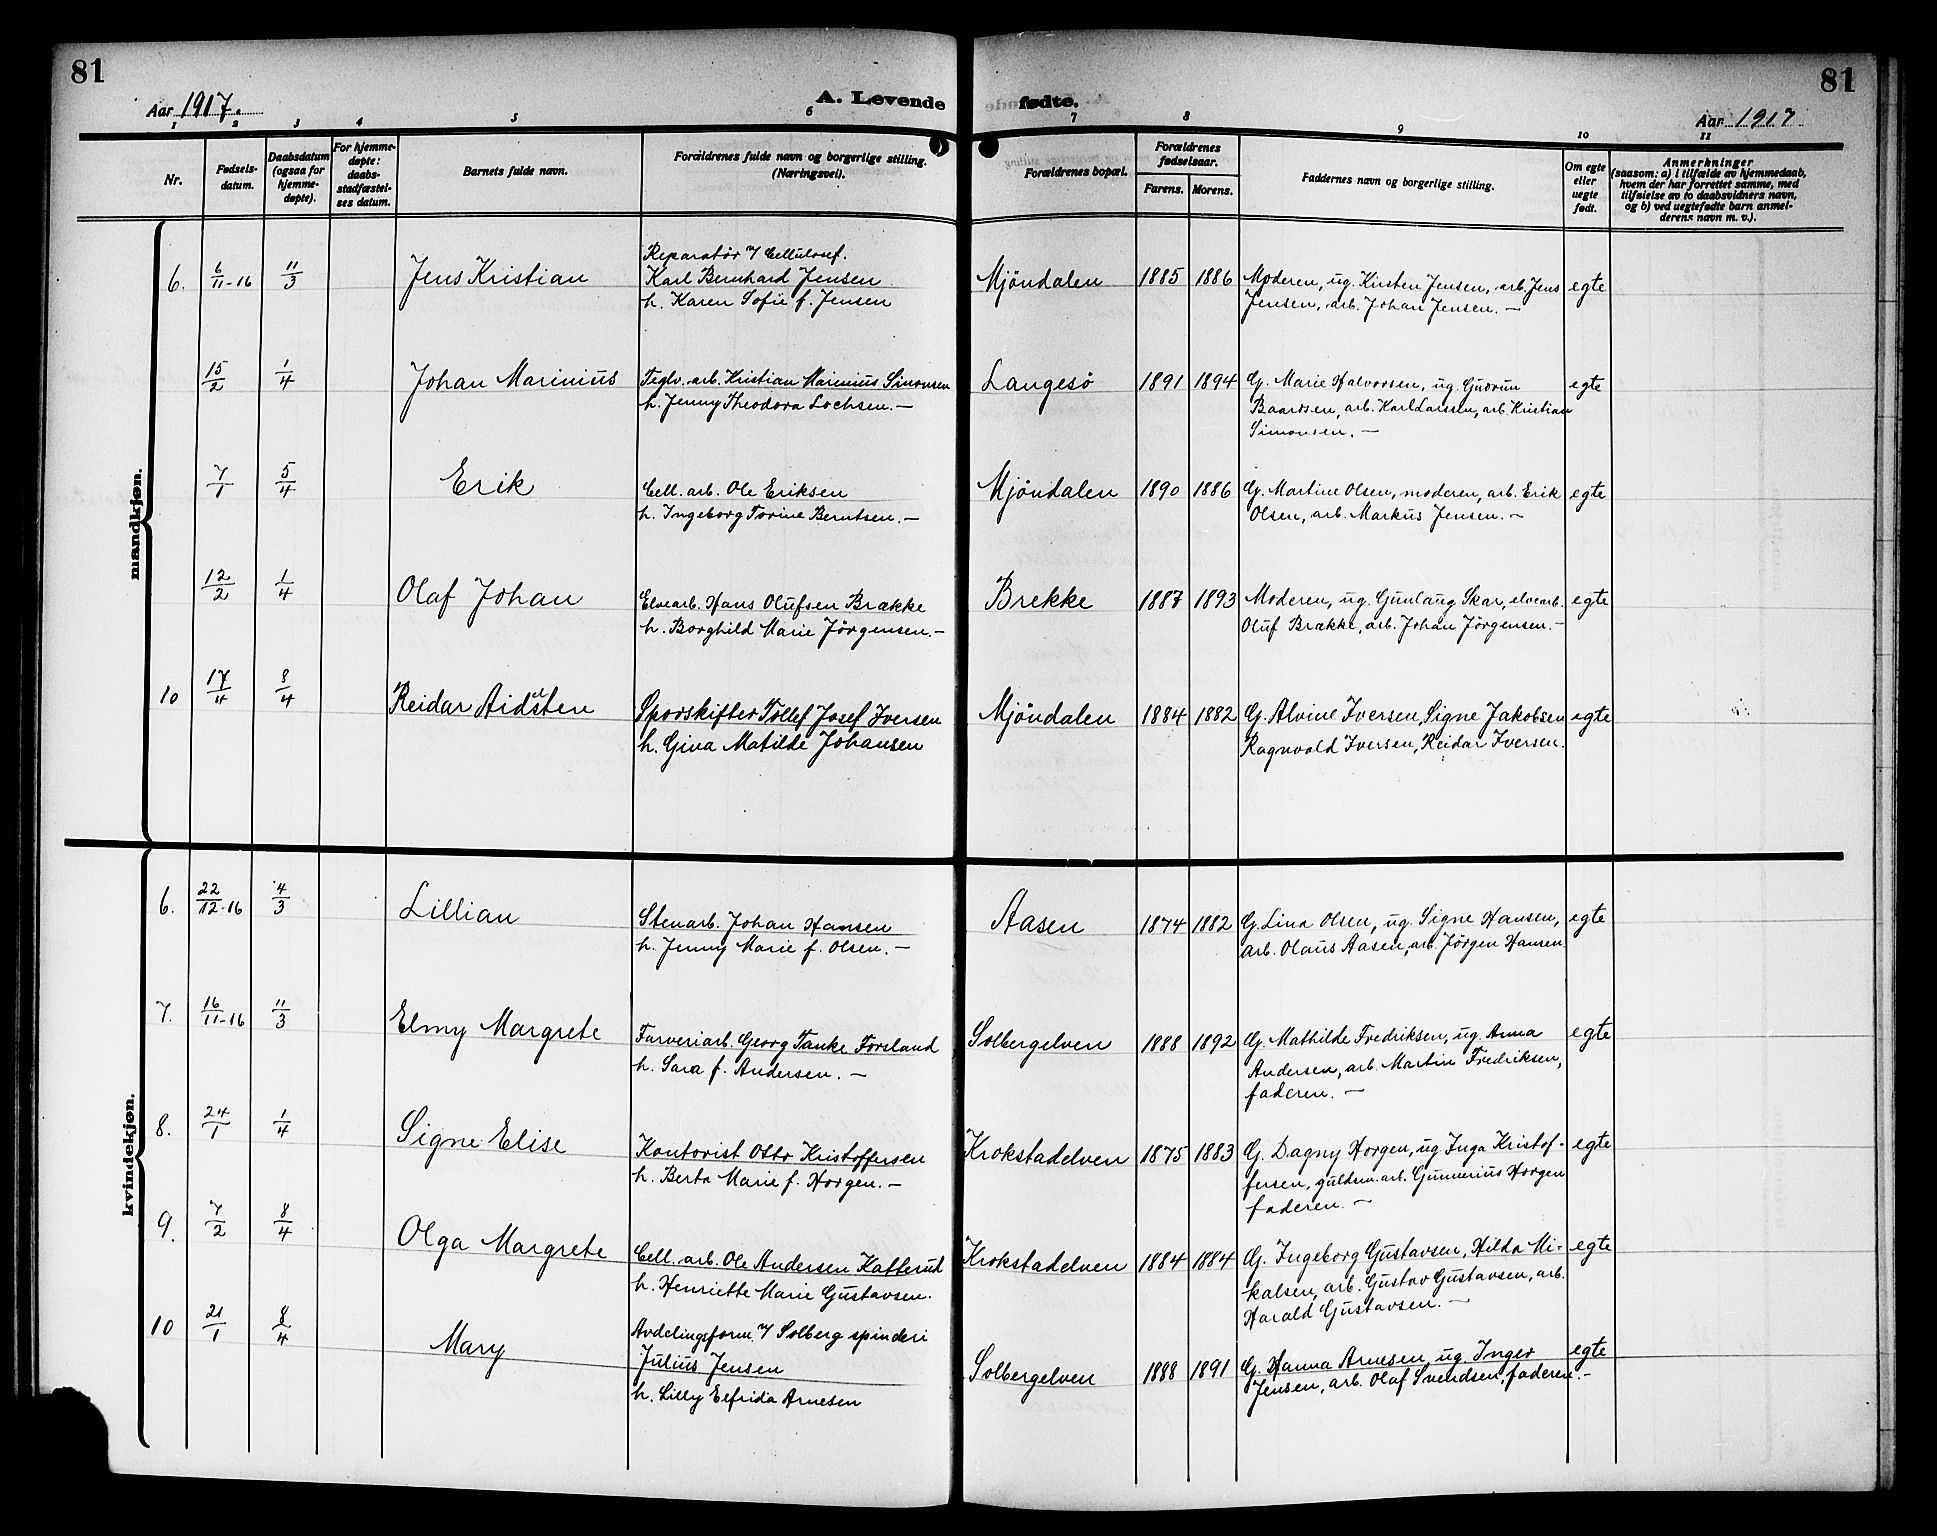 81
Aar 1917.
A. Levende
1 2 3 4 5 6
Nr.
Fødsels-
datum.
Daabsdatum
(ogsaa for
hjemme-
døpte).
For hjemme-
døpte:
daabs-
stadfæstel-
ses datum.
Barnets fulde navn.
Forældrenes fulde navn og borgerlige stilling.
(Næringsvei).
fødte.
81
Aar 1917
7 8 9 10 11
Forældrenes bopæl.
Forældrenes
fødselsaar.
Farens. Morens.
Faddernes navn og borgerlige stilling.
Om egte
eller
uegte
født.
Anmerkninger
(saasom: a) i tilfælde av hjemmedaab,
hvem der har forrettet samme, med
tilføielse av to daabsvidners navn,
og b) ved uegtefødte barn anmel-
derens navn m. v.).
mandkjøn.
6. 6/11-16 11/3 Jens Kristian
Reparatør v/ Cellulosef.
Karl Bernhard Jensen
h. Karen Sofie f. Jensen
Mjöndalen 1885 1886
Moderen, ug. Kirsten Jensen, arb. Jens
Jensen, arb. Johan Jensen. —
egte
15/2 1/4 Johan Marinius
Teglv. arb. Kristian Marinius Simonsen
h. Jenny Theodora Lochsen. —
Langesö 1891 1894
G. Marie Halvorsen, ug. Gudrun
Baardsen, arb. Karl Larssen, arb. Kristian
Simonsen. —
egte
7/1 5/4 Erik
Cell. arb. Ole Eriksen
h. Ingeborg Torine Berntsen. —
Mjöndalen 1890 1886
G. Martine Olsen, moderen, arb. Erik
Olsen, arb. Markus Jensen. —
egte
12/2 1/4 Olaf Johan
Elvearb. Hans Olufsen Brække
h. Borghild Marie Jörgensen. —
Brekke 1887 1893
Moderen, ug. Gunlaug Skar, elvearb.
Oluf Brække, arb. Johan Jörgensen. —
egte
10 17/4 8/4 Reidar Aidsten
Sporskifter Tollef Josef Iversen
h. Gina Matilde Johansen
Mjöndalen 1884 1882
G. Alvine Iversen, Signe Jakobsen
Ragnvald Iversen, Reidar Iversen.
egte
kvindekjøn.
6. 22/12-16 4/3 Lillian
Stenarb. Johan Hansen
h. Jenny Marie f. Olsen. —
Aasen 1874 1882
G. Lina Olsen, ug. Signe Hansen,
arb. Olaus Aasen, arb. Jörgen Hansen
egte
7. 16/11-16 11/3 Elmy Margrete
Farveriarb. Georg Tanke Forsland
h. Sara f. Andersen. —
Solbergelven 1888 1892
G. Mathilde Fredriksen, ug. Anna
Andersen, arb. Martin Fredriksen,
faderen. —
egte
8. 24/1 1/4 Signe Elise
Kontorist Otto Kristoffersen
h. Berta Marie f. Horgen. —
Krokstadelven 1875 1883
G. Dagny Horgen, ug. Inga Kristof-
fersen, guldsm. arb. Gunnerius Horgen
faderen. —
egte
9. 7/2 8/4 Olga Margrete
Cell. arb. Ole Andersen Katterud
h. Henriette Marie Gustavsen.
Krokstadelven 1884 1884
G. Ingeborg Gustavsen, Hilda Mi-
kalsen, arb. Gustav Gustavsen, arb.
Harald Gustavsen. —
egte
10 21/1 8/4 Mary
Avdelingsform. v/ Solberg spinderi
Julius Jensen
h. Lilly Elfrida Arnesen
Solbergelven 1888 1891
G. Hanna Arnesen, ug. Inger
Jensen, arb. Olaf Svendsen, faderen. —
egte